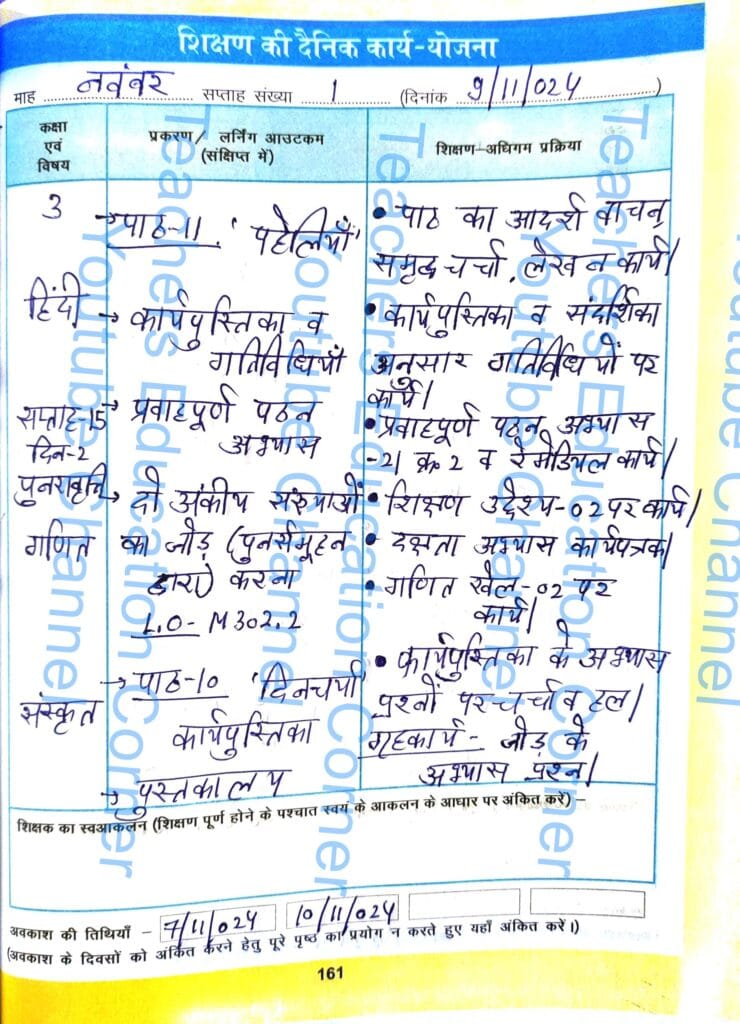 शिक्षण की दैनिक कार्य-योजना
माह नवंबर सप्ताह संख्या 1 (दिनांक 9/11/024)
कक्षा
एवं
विषय
प्रकरण/ लर्निंग आउटकम
(संक्षिप्त में)
शिक्षण-अधिगम प्रक्रिया
3
हिंदी
सप्ताह-15
दिन-2
पुनरावृत्ति
गणित
संस्कृत
→ पाठ-11. 'पहेलियाँ'
→ कार्यपुस्तिका व
गतिविधियाँ
→ प्रवाहपूर्ण पठन
अभ्यास
→ दो अंकीय संख्याओं
का जोड़ (पुनर्समूहन
द्वारा) करना
L.O- M302.2
→ पाठ-10 'दिनचर्या'
कार्यपुस्तिका
→ पुस्तकालय
• पाठ का आदर्श वाचन,
समृद्ध चर्चा, लेखन कार्य।
• कार्यपुस्तिका व संदर्शिका
अनुसार गतिविधियों पर
कार्य।
• प्रवाहपूर्ण पठन अभ्यास
-21 क्र 2 व रेमेडियल कार्य।
• शिक्षण उद्देश्य-02 पर कार्य।
• दक्षता अभ्यास कार्यपत्रक।
• गणित खेल-02 पर
कार्य।
• कार्यपुस्तिका के अभ्यास
प्रश्नों पर चर्चा व हल।
गृहकार्य- जोड़ के
अभ्यास प्रश्न।
शिक्षक का स्वआकलन (शिक्षण पूर्ण होने के पश्चात स्वयं के आकलन के आधार पर अंकित करें) –
अवकाश की तिथियाँ – 7/11/024 10/11/024
(अवकाश के दिवसों को अंकित करने हेतु पूरे पृष्ठ का प्रयोग न करते हुए यहाँ अंकित करें।)
161
Teachers Education Corner
Youtube Channel
Teachers Education Corner
Youtube Channel
Teachers Education Corner
Youtube Channel
Youtube Channel